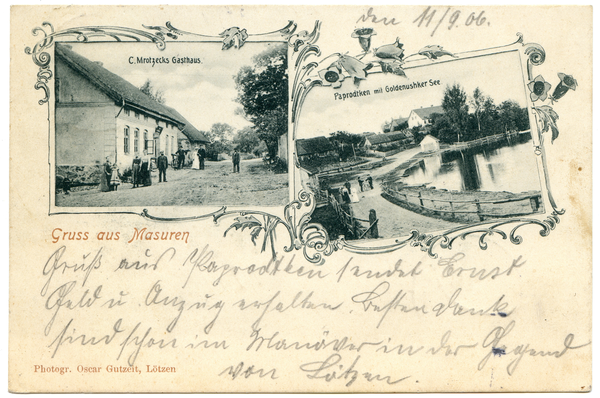 den 11/9.06.
C. Mrotzecks Gasthaus.
Paprodtken mit Goldenushker See
Gruss aus Masuren
Gruß aus Paprodtken sendet Ernst.
Geld u. Anzug erhalten. Besten Dank
sind schon im Manöver in der Gegend
von Lötzen.
Photogr. Oscar Gutzeit, Lötzen